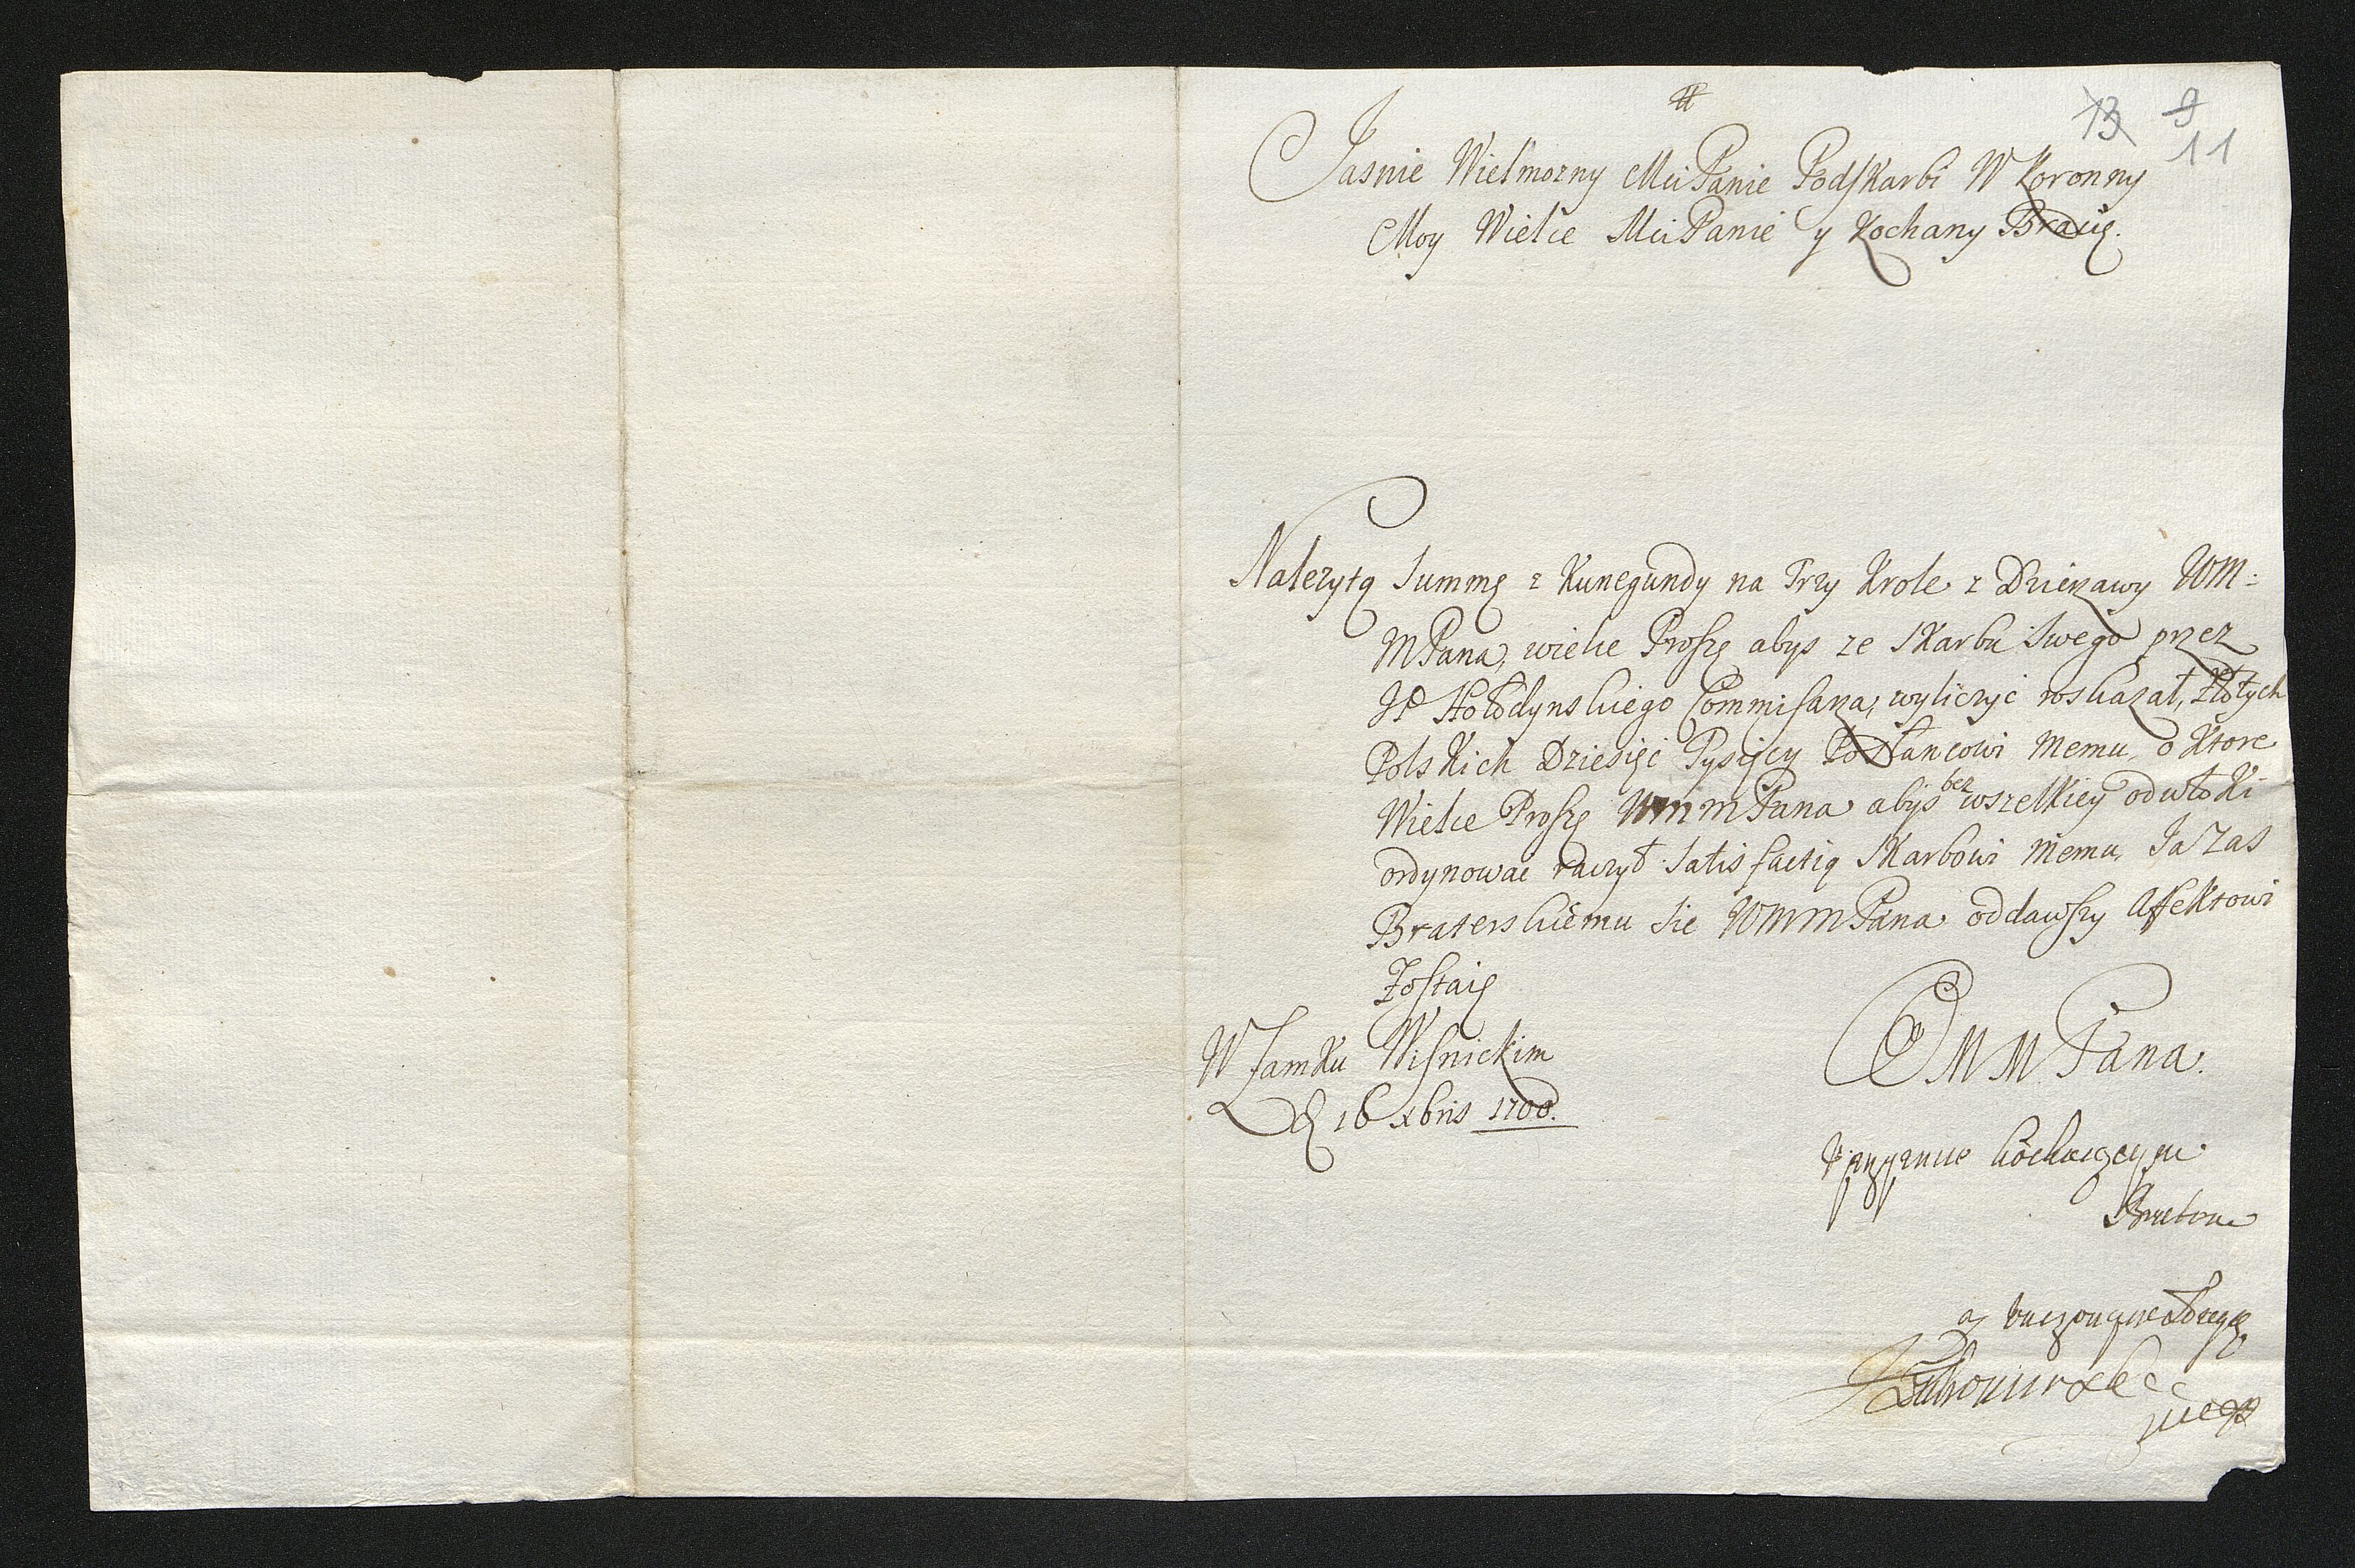 13 9
11
Jasnie Wielmozny Mci Panie Podskarbi W Koronny
Moy Wielce Mci Panie y Kochany Bracie.
Nalezytą Summę z Kunegundy na Trzy Krole z Dzierzawy WM:
MPana, wielce Proszę abys ze Skarbu Swego przez
JP Hołodynskiego Commisarza, wyliczyć roskazał, Złotych
Polskich Dziesięć Tysięcy Posłancowi Memu, o Ktore
Wielce Proszę WMMPana abys bez wszelkiey odwłoKi
ordynowac raczył Satisfactią Skarbowi Memu, Ja Zas
Braterskiemu Sie WMMPana oddawszy Affektowi
Zostaię
WMM Pana.
W Zamku Wisnickim
D 16 xbris 1700.
kochaiącym
Bratem
Lubomirski